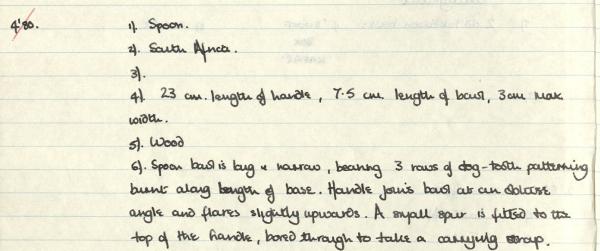 4'80. 1). Spoon.
2). South Africa.
3).
4). 23 cm. length of handle, 7.5 cm length of bowl, 3cm max
width.
5). Wood
6). Spoon bowl is long & narrow, bearing 3 rows of dog-tooth patterning
burnt along length of base. Handle joins bowl at an obtuse
angle and flares slightly upwards. A small spur is fitted to the
top of the handle, bored through to take a carrying strap.